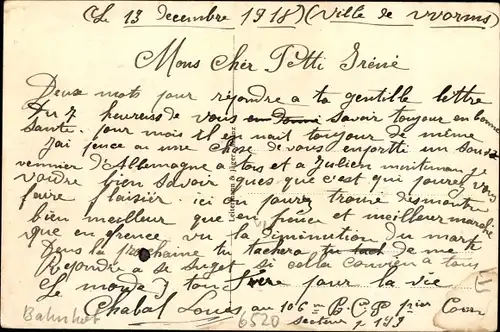 (Le 13 decembre 1918) (Ville de Worms)
Mons Cher Petti Iréné
Deux mots pour réjondre a ta gentille lettre
du 7 heureux de vous savoir toujour en bonne
sante. pour moi il en nait toujour de même
Jai pence au une chose de vous enportté un souz
vennier d'Allemagne a tois et a Julien maintenant je
voudré bien savoir ques que c'est qui pouret vous
faire plaisier. ici on pouret trouvé des montre
bien meilleur que en frence et meilleur marché
que en frence vu la diminution du mark
Dens la prochaine tu tachera de me
Rejondre a se suget si cella convien a tous
Le monde ton frère pour la vie
Chabal Loues au 106 m B.C.P 1ier Com
secteur p 199
Bahnhof
6520